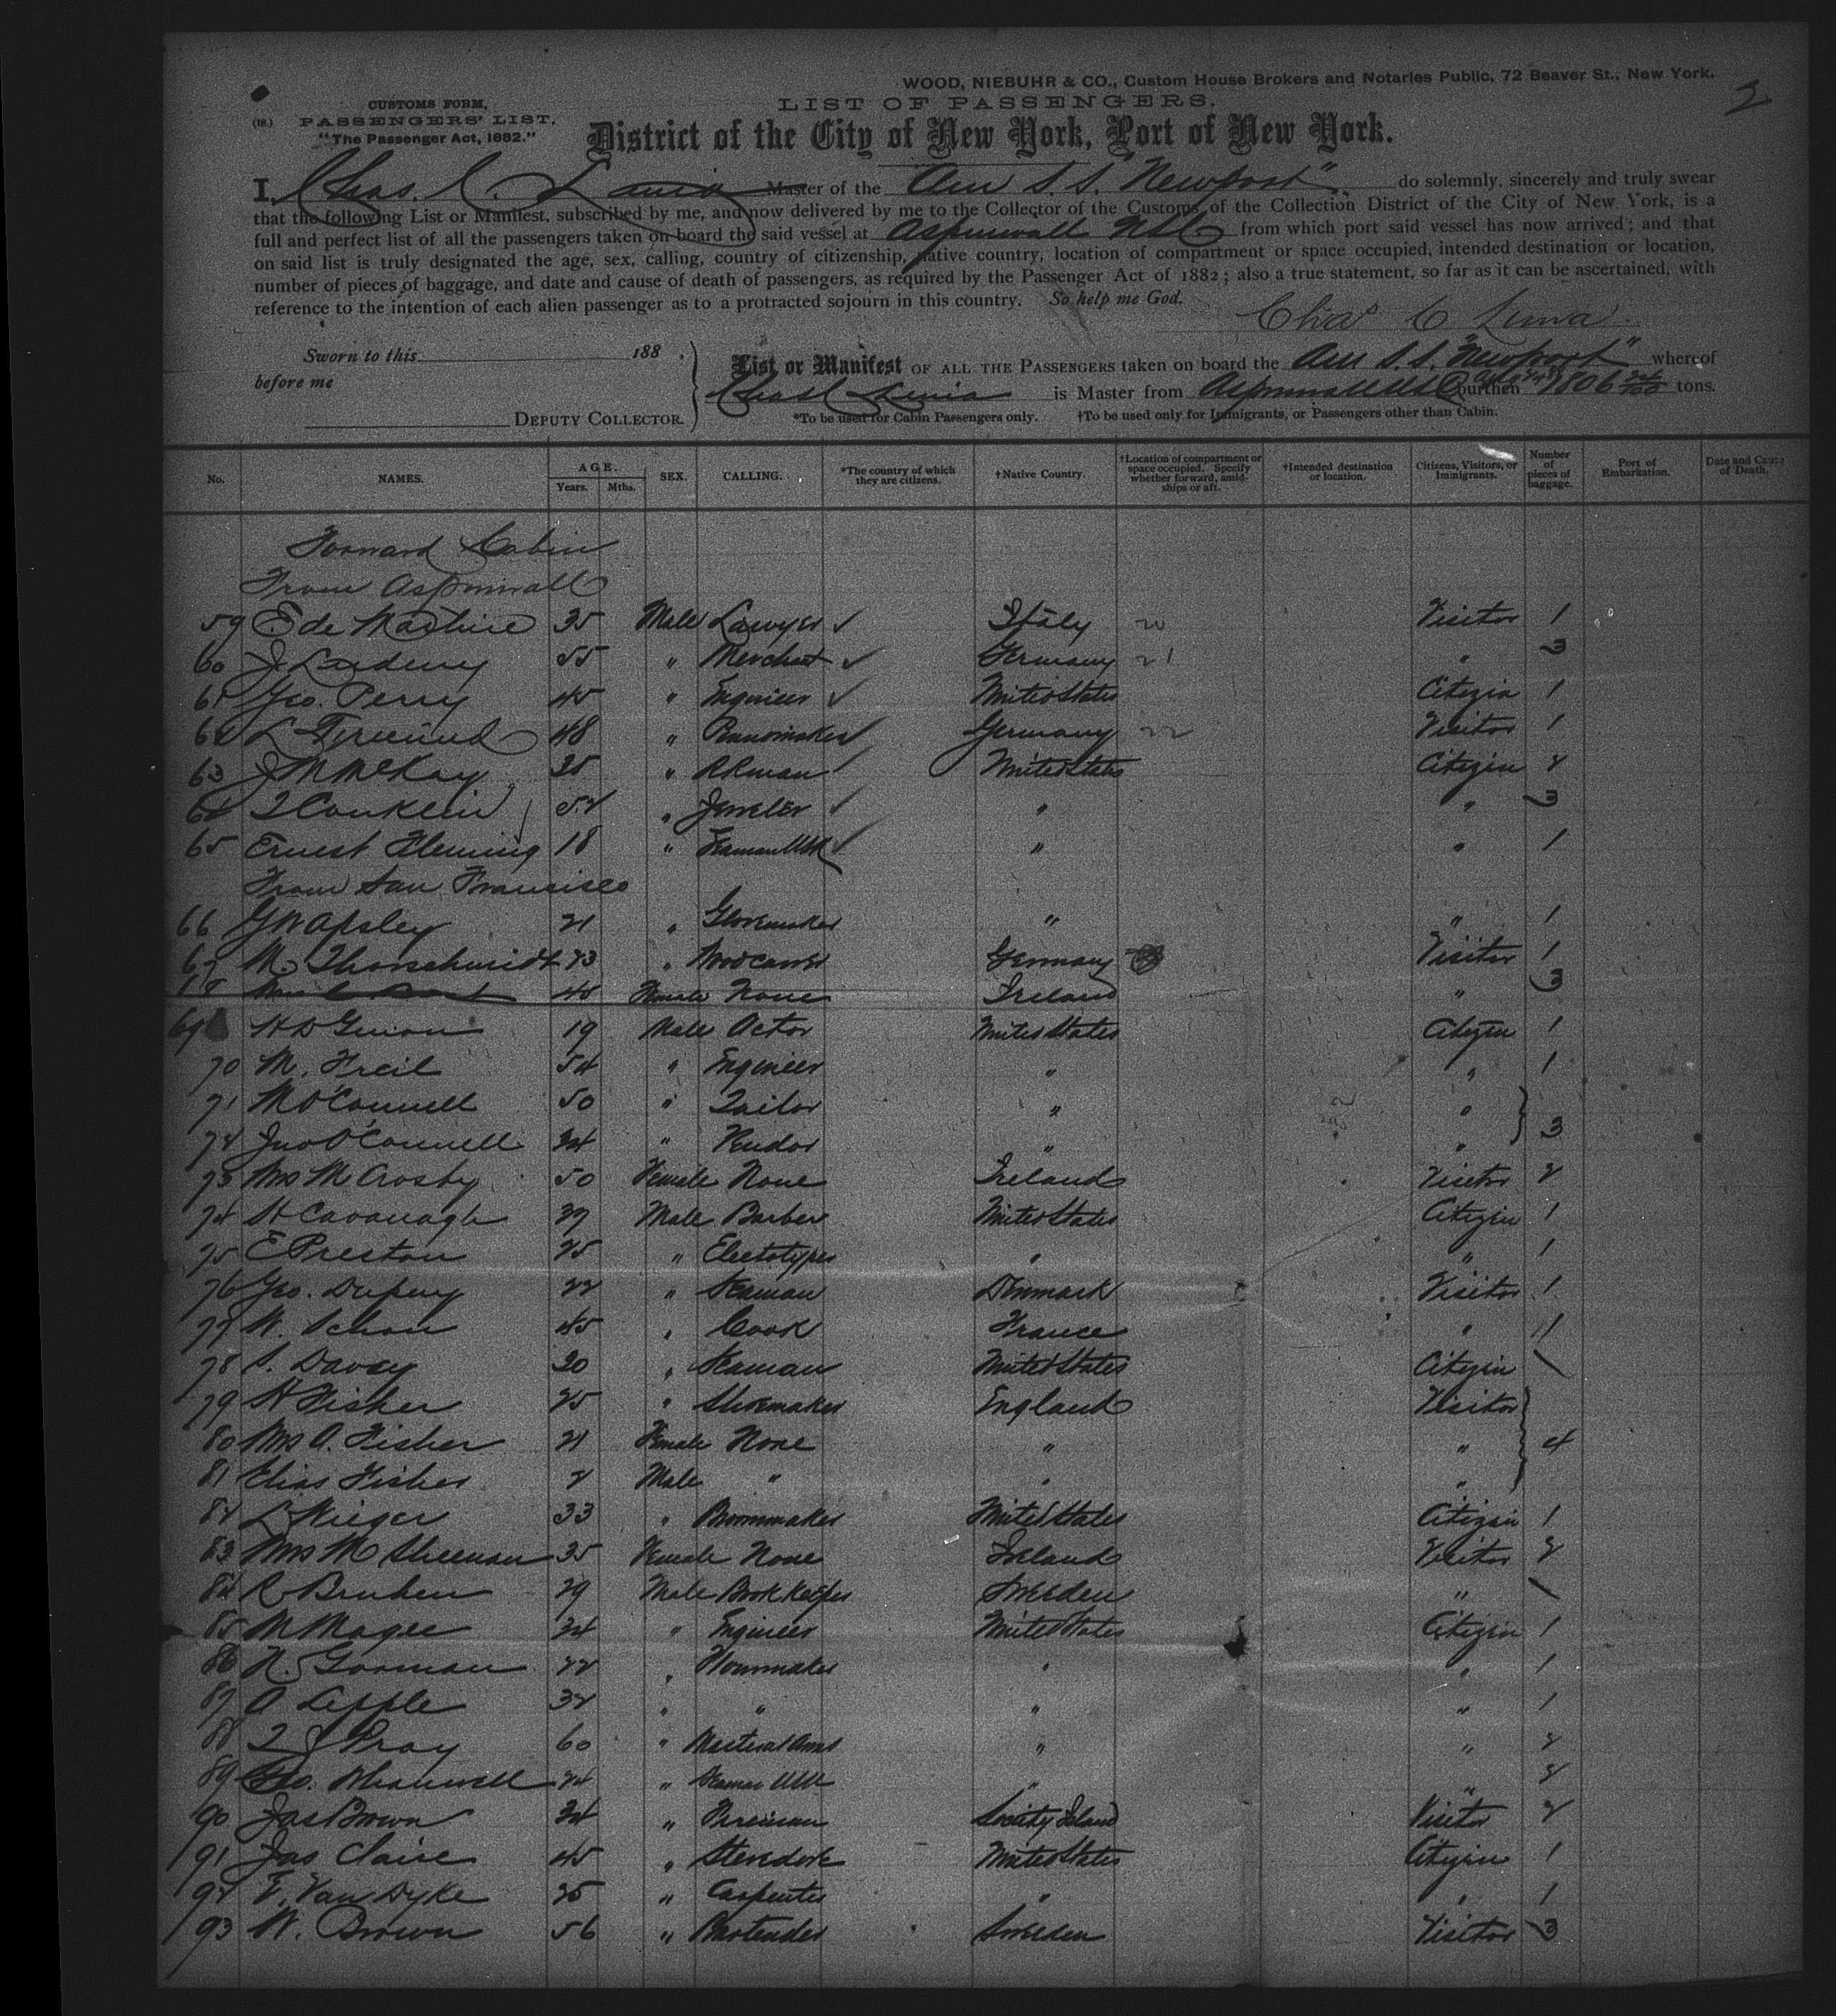 WOOD, NIEBUHR & CO., Custom House Brokers and Notaries Public, 72 Beaver St., New York.
2
CUSTOMS FORM,
(18.) PASSENGERS' LIST.
"The Passenger Act, 1882."
LIST OF PASSENGERS.
District of the City of New York, Port of New York.
I, Chas. C. Master of the Am S.S. "Newport" do solemnly, sincerely and truly swear
that the following List or Manifest, subscribed by me, and now delivered by me to the Collector of the Customs of the Collection District of the City of New York, is a
full and perfect list of all the passengers taken on board the said vessel at Aspinwall USC from which port said vessel has now arrived; and that
on said list is truly designated the age, sex, calling, country of citizenship, native country, location of compartment or space occupied, intended destination or location,
number of pieces of baggage, and date and cause of death of passengers, as required by the Passenger Act of 1882; also a true statement, so far as it can be ascertained, with
reference to the intention of each alien passenger as to a protracted sojourn in this country. So help me God.
Chas C
Sworn to this 188 .
before me
DEPUTY COLLECTOR.
List or Manifest OF ALL THE PASSENGERS taken on board the Am S.S. "Newport" whereof
Chas C is Master from Aspinwall USC burthen tons.
*To be used for Cabin Passengers only. †To be used only for Immigrants, or Passengers other than Cabin.
No. NAMES. AGE. Years. Mths. SEX. CALLING. *The country of which they are citizens. †Native Country. †Location of compartment or space occupied. Specify whether forward, amidships or aft. †Intended destination or location. Citizens, Visitors, or Immigrants. Number of pieces of baggage. Port of Embarkation. Date and Cause of Death.
Forward Cabin
From Aspinwall
59 E de Martine 35 Male Lawyer ✓ Italy 20 Visitor 1
60 J 55 " Merchant ✓ Germany 21 " 3
61 Geo. Perry 45 " Engineer ✓ United States Citizen 1
62 L 48 " ✓ Germany 22 Visitor 1
63 J M McKay 35 " RRman ✓ United States Citizen 2
64 T Conklin 52 " Jeweler ✓ " " 3
65 Ernest Fleming 18 " Seaman ✓ " " 1
From San Francisco
66 G W Apsley 21 " Glovemaker " " 1
67 M. Thorschmidt 23 " Woodcarver Germany Visitor 1
68 40 Female None Ireland " 3
69 19 Male Actor United States Citizen 1
70 M. Freil 54 " Engineer " " 1
71 M O'Connell 50 " Tailor " "
72 Jno O'Connell 24 " Vendor " " 3
73 Mrs M Crosby 50 Female None Ireland Visitor 2
74 H Cavanagh 27 Male Barber United States Citizen 1
75 E Preston 25 " Electotyper " " 1
76 Geo. Dupuy 22 " Seaman Denmark Visitor 1
77 W. Schon 45 " Cook France " 1
78 S. Davey 20 " Seaman United States Citizen 1
79 H Fisher 25 " Shoemaker England Visitor
80 Mrs A. Fisher 21 Female None " " 4
81 Elias Fisher 2 Male " " "
82 L Rieger 33 " Broommaker United States Citizen 1
83 Mrs M Sheenan 35 Female None Ireland Visitor 2
84 R Bruhen 29 Male Book Keeper Sweeden " 1
85 M Magee 34 " Engineer United States Citizen 1
86 H. Gorman 22 " " " 1
87 A Lepple 32 " " " " 1
88 T J Pray 60 " " " 2
89 Geo. 24 " Seaman " " 2
90 Jas Brown 34 " Fireman Society Island Visitor 2
91 Jas Claire 45 " Stevedore United States Citizen 1
92 F. Van Dyke 25 " Carpenter " " 1
93 W. Brown 56 " Bartender Sweeden Visitor 3